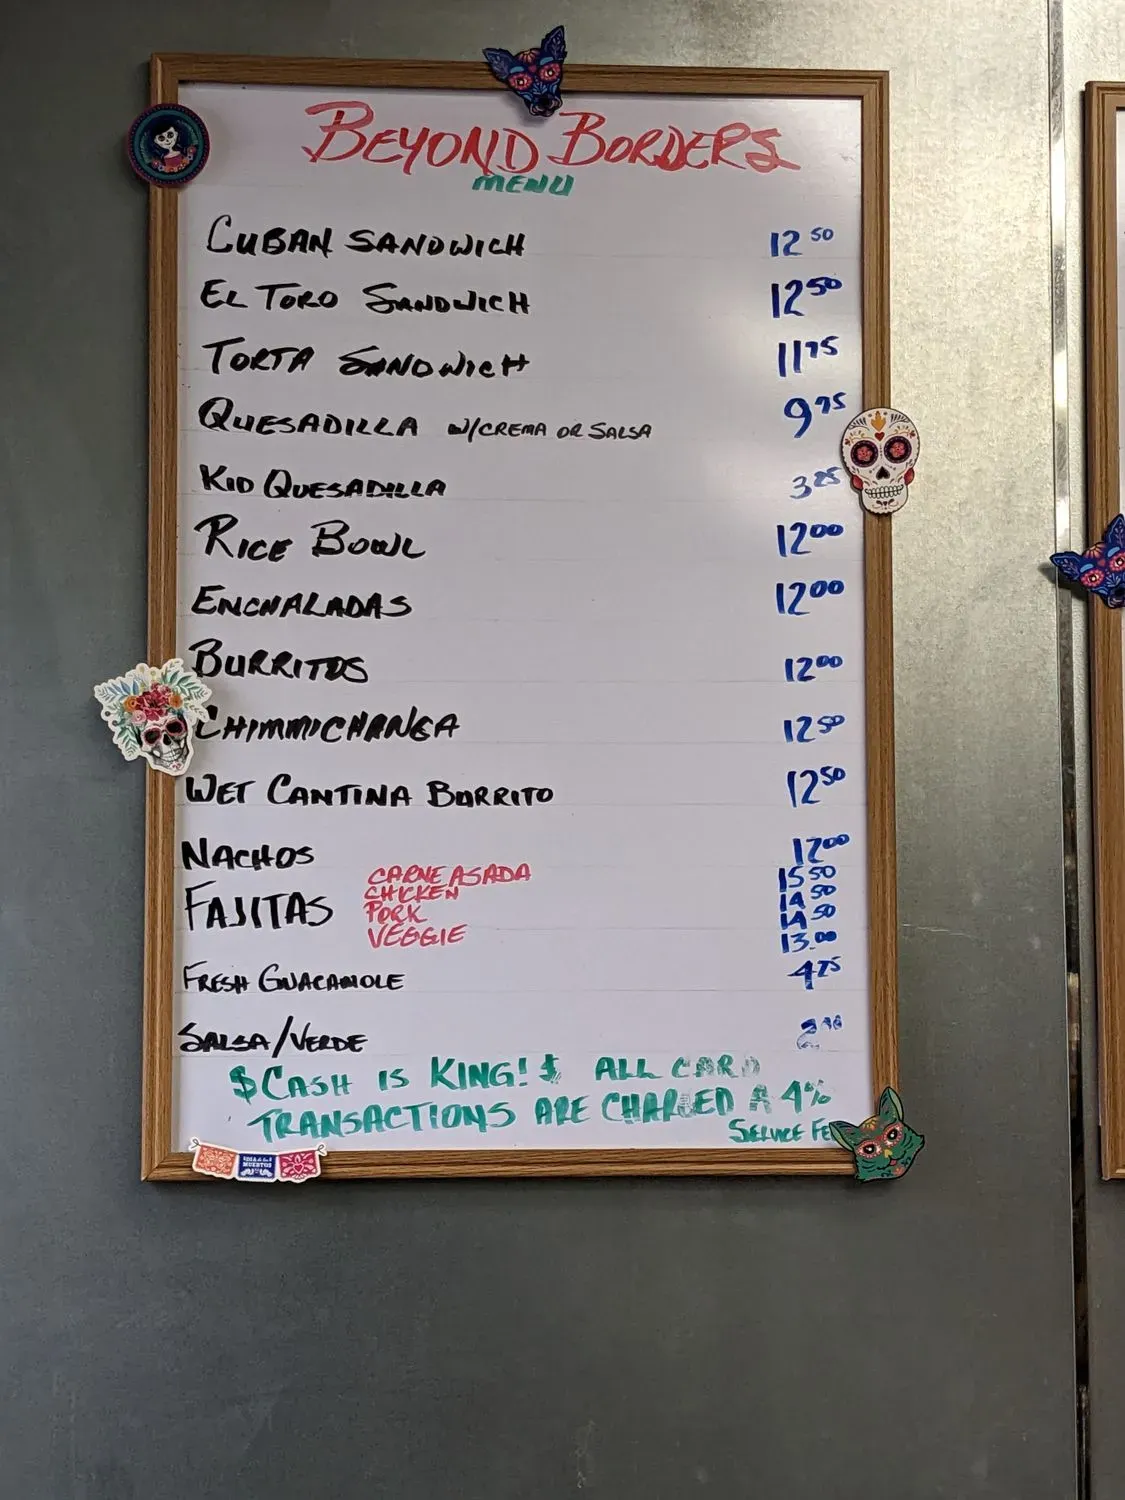 BEYOND BORDERS
MENU
CUBAN SANDWICH 12 50
EL TORO SANDWICH 12 50
TORTA SANDWICH 11 75
QUESADILLA W/CREMA OR SALSA 9 75
KID QUESADILLA
RICE BOWL 12 00
ENCHALADAS 12 00
BURRITOS 12 00
CHIMMICHANGA 12 50
WET CANTINA BURRITO 12 50
NACHOS 12 00
FAJITAS
CARNE ASADA 15 50
CHICKEN 14 50
PORK 14 50
VEGGIE 13.00
FRESH GUACAMOLE 4 75
SALSA/VERDE
$CASH IS KING! $ ALL CARD
TRANSACTIONS ARE CHARGED A 4%
SERVICE FE
DIA de los
MUERTOS